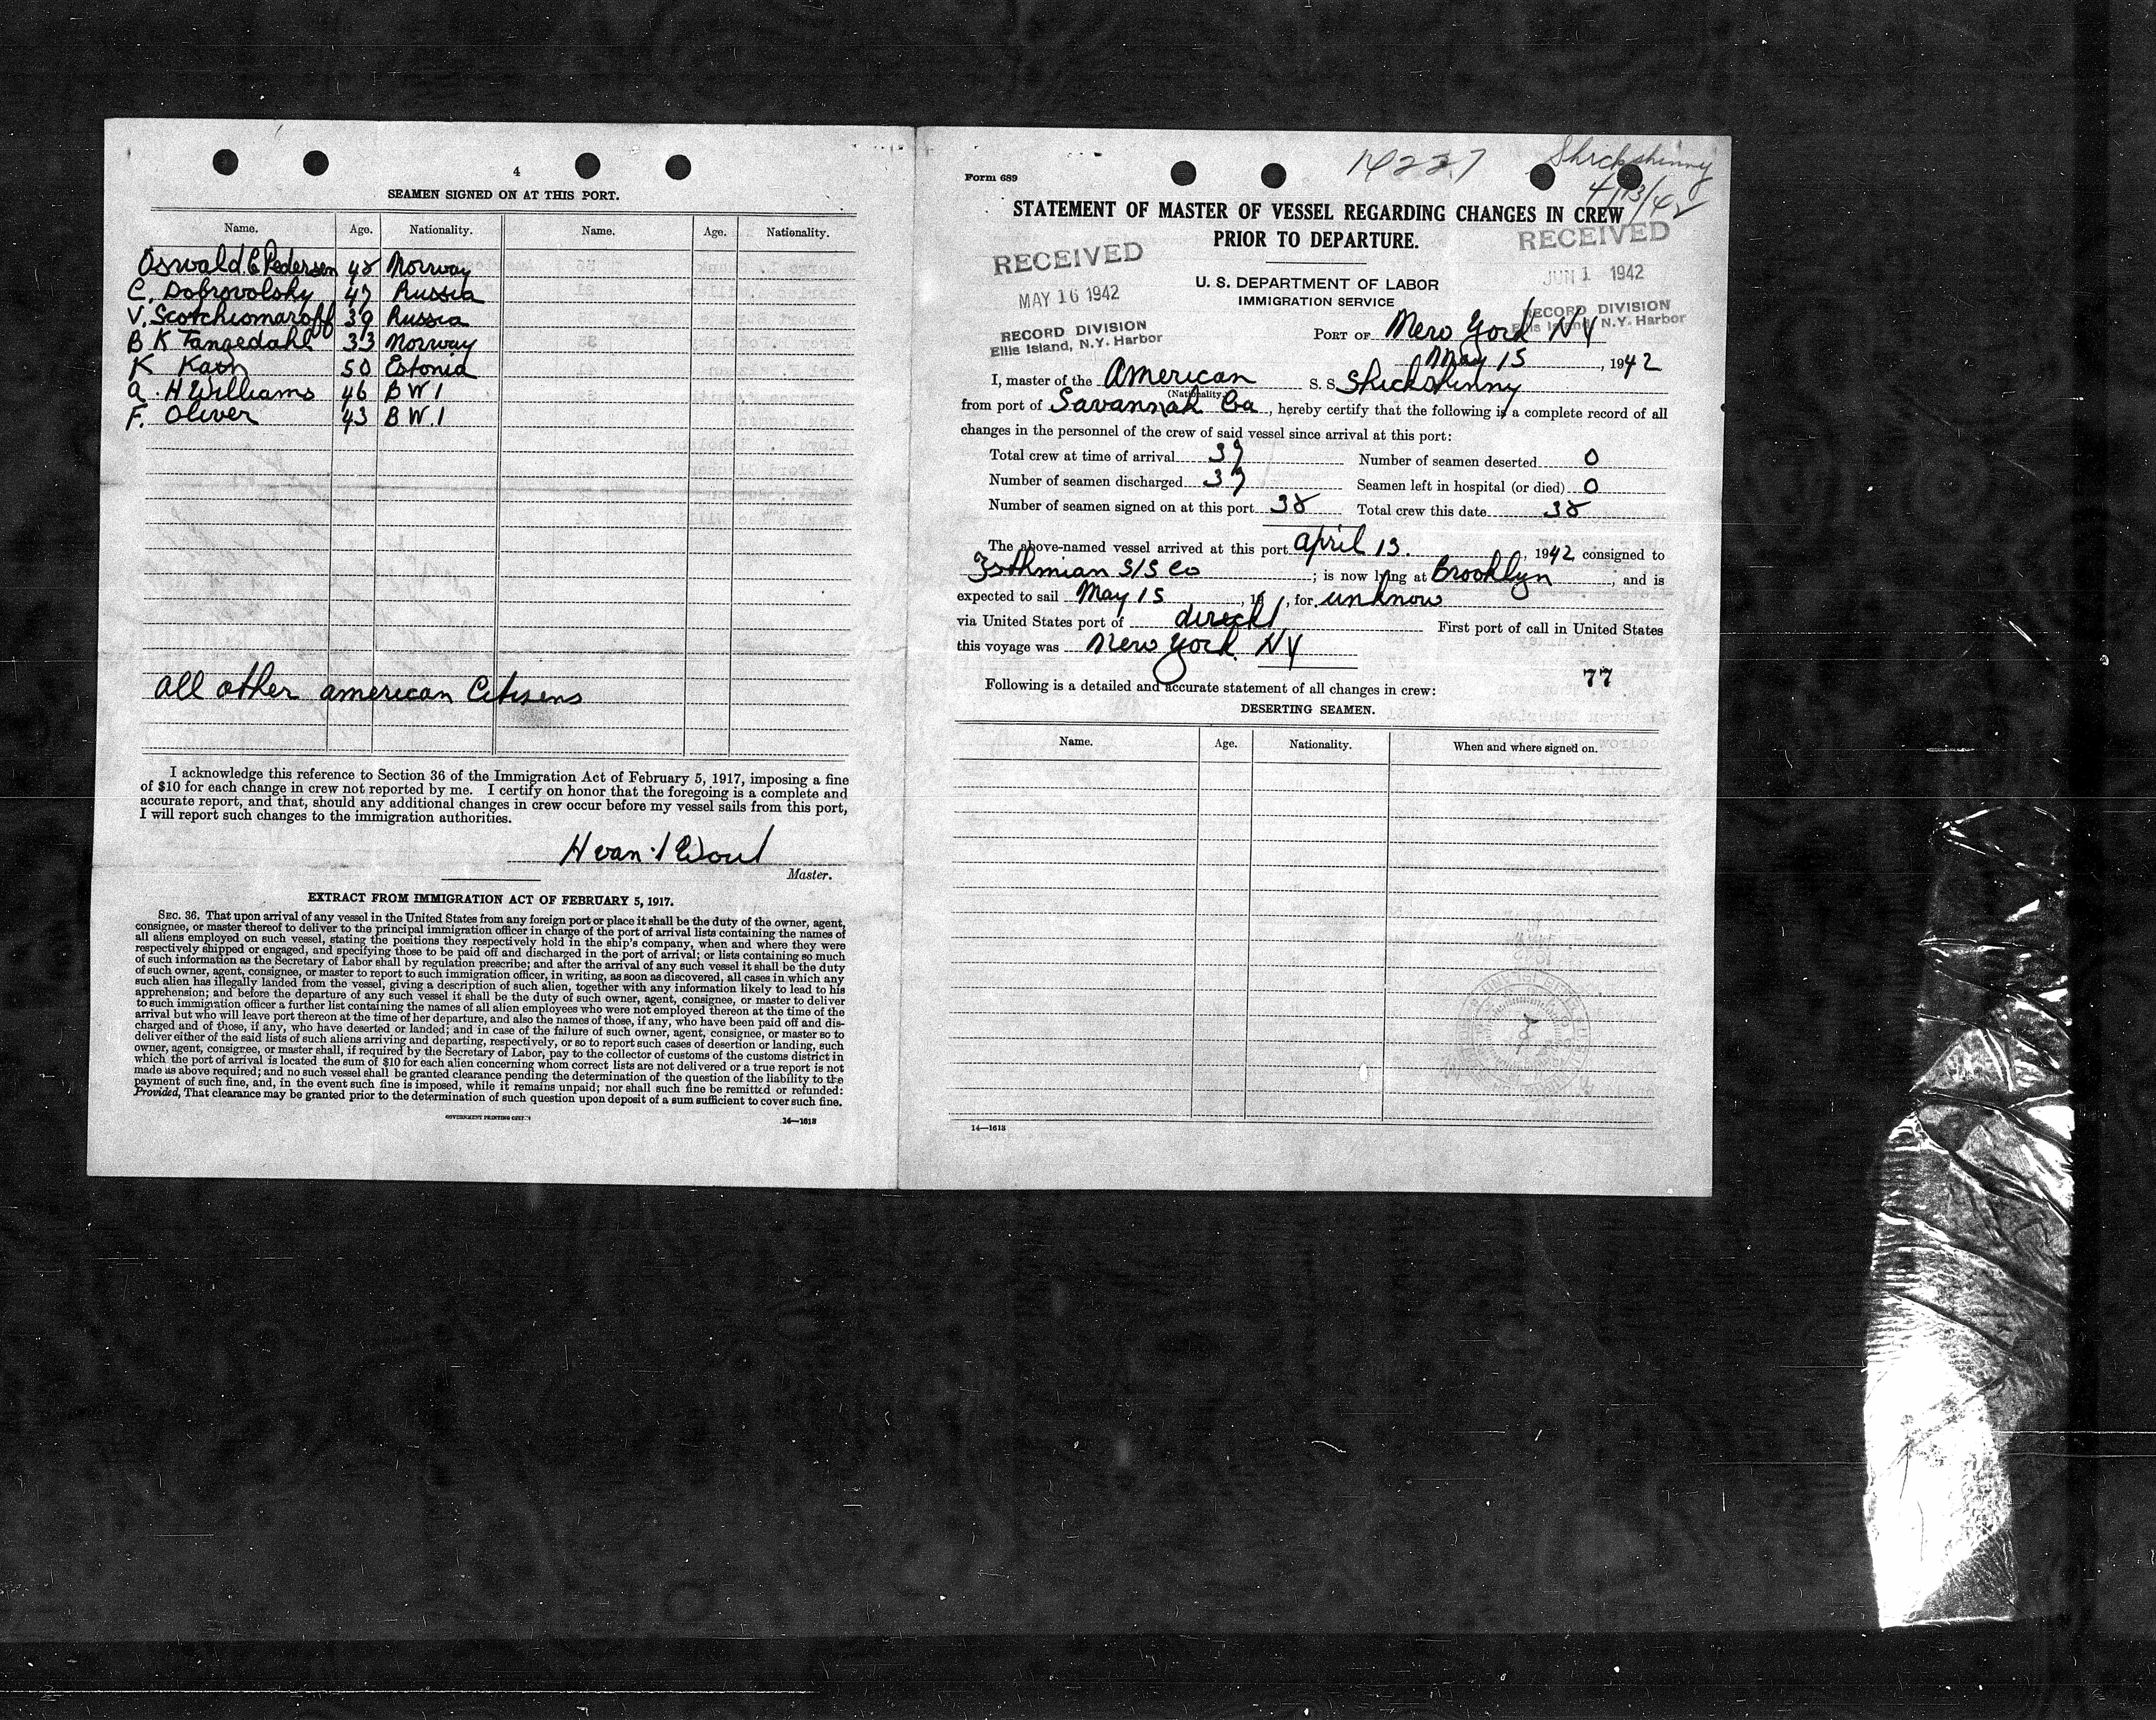 4
SEAMEN SIGNED ON AT THIS PORT.
Name. Age. Nationality. Name. Age. Nationality.
Oswald E Pedersen 48 Norway
C. Dobrovolsky 47 Russia
V. Scotchiomaroff 39 Russia
B K Tangedahl 33 Norway
K Kash 50 Estonia
A. H Williams 46 B W I
F. Oliver 43 B W. I
all other american Citisens
I acknowledge this reference to Section 36 of the Immigration Act of February 5, 1917, imposing a fine
of $10 for each change in crew not reported by me. I certify on honor that the foregoing is a complete and
accurate report, and that, should any additional changes in crew occur before my vessel sails from this port,
I will report such changes to the immigration authorities.
Master.
EXTRACT FROM IMMIGRATION ACT OF FEBRUARY 5, 1917.
SEC. 36. That upon arrival of any vessel in the United States from any foreign port or place it shall be the duty of the owner, agent,
consignee, or master thereof to deliver to the principal immigration officer in charge of the port of arrival lists containing the names of
all aliens employed on such vessel, stating the positions they respectively hold in the ship's company, when and where they were
respectively shipped or engaged, and specifying those to be paid off and discharged in the port of arrival; or lists containing so much
of such information as the Secretary of Labor shall by regulation prescribe; and after the arrival of any such vessel it shall be the duty
of such owner, agent, consignee, or master to report to such immigration officer, in writing, as soon as discovered, all cases in which any
such alien has illegally landed from the vessel, giving a description of such alien, together with any information likely to lead to his
apprehension; and before the departure of any such vessel it shall be the duty of such owner, agent, consignee, or master to deliver
to such immigration officer a further list containing the names of all alien employees who were not employed thereon at the time of the
arrival but who will leave port thereon at the time of her departure, and also the names of those, if any, who have been paid off and dis-
charged and of those, if any, who have deserted or landed; and in case of the failure of such owner, agent, consignee, or master so to
deliver either of the said lists of such aliens arriving and departing, respectively, or so to report such cases of desertion or landing, such
owner, agent, consignee, or master shall, if required by the Secretary of Labor, pay to the collector of customs of the customs district in
which the port of arrival is located the sum of $10 for each alien concerning whom correct lists are not delivered or a true report is not
made as above required; and no such vessel shall be granted clearance pending the determination of the question of the liability to the
payment of such fine, and, in the event such fine is imposed, while it remains unpaid; nor shall such fine be remitted or refunded:
Provided, That clearance may be granted prior to the determination of such question upon deposit of a sum sufficient to cover such fine.
GOVERNMENT PRINTING OFFICE
14—1613
Form 689
14227
Shickshinny
4/13/42
STATEMENT OF MASTER OF VESSEL REGARDING CHANGES IN CREW
PRIOR TO DEPARTURE.
RECEIVED
MAY 16 1942
RECORD DIVISION
Ellis Island, N.Y. Harbor
RECEIVED
JUN 1 1942
RECORD DIVISION
Ellis Island, N.Y. Harbor
U. S. DEPARTMENT OF LABOR
IMMIGRATION SERVICE
PORT OF New York NY
May 15, 1942
I, master of the American S. S. Shickshinny
(Nationality)
from port of Savannah Ga, hereby certify that the following is a complete record of all
changes in the personnel of the crew of said vessel since arrival at this port:
Total crew at time of arrival 37 Number of seamen deserted 0
Number of seamen discharged 37 Seamen left in hospital (or died) 0
Number of seamen signed on at this port 38 Total crew this date 38
The above-named vessel arrived at this port april 13. , 1942 consigned to
Isthmian S/S Co ; is now lying at Brooklyn ; and is
expected to sail May 15 , 19 , for unknow
via United States port of direckt First port of call in United States
this voyage was New York. NY
77
Following is a detailed and accurate statement of all changes in crew:
DESERTING SEAMEN.
Name. Age. Nationality. When and where signed on.
14—1613